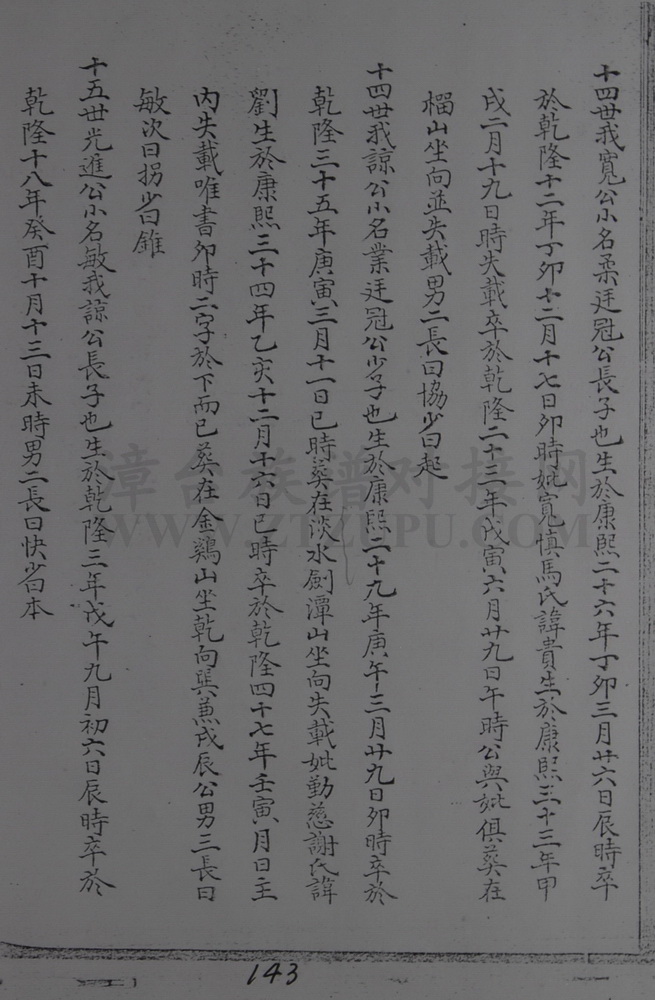 十四世我寬公小名柔廷冠公長子也生於康熙二十六年丁卯三月廿六日辰時卒
於乾隆十二年丁卯十二月十七日卯時妣寬慎馬氏諱貴生於康熙三十三年甲
戌二月十九日時失載卒於乾隆二十三年戊寅六月廿九日午時公與妣俱葬在
榴山坐向並失載男二長曰協少曰起
十四世我諒公小名業廷冠公少子也生於康熙二十九年庚午三月廿九日卯時卒於
乾隆三十五年庚寅三月十一日巳時葬在淡水劍潭山坐向失載妣勤慈謝氏諱
劉生於康熙三十四年乙亥十二月十六日巳時卒於乾隆四十七年壬寅月日主
内失載唯書卯時二字於下而已葬在金鷄山坐乾向巽兼戌辰公男三長曰
敏次曰拐少曰錐
十五世光進公小名敏我諒公長子也生於乾隆三年戊午九月初六日辰時卒於
乾隆十八年癸酉十月十三日未時男二長曰快少曰本
漳台族谱对接网
WWW.ZTZUPU.COM
143